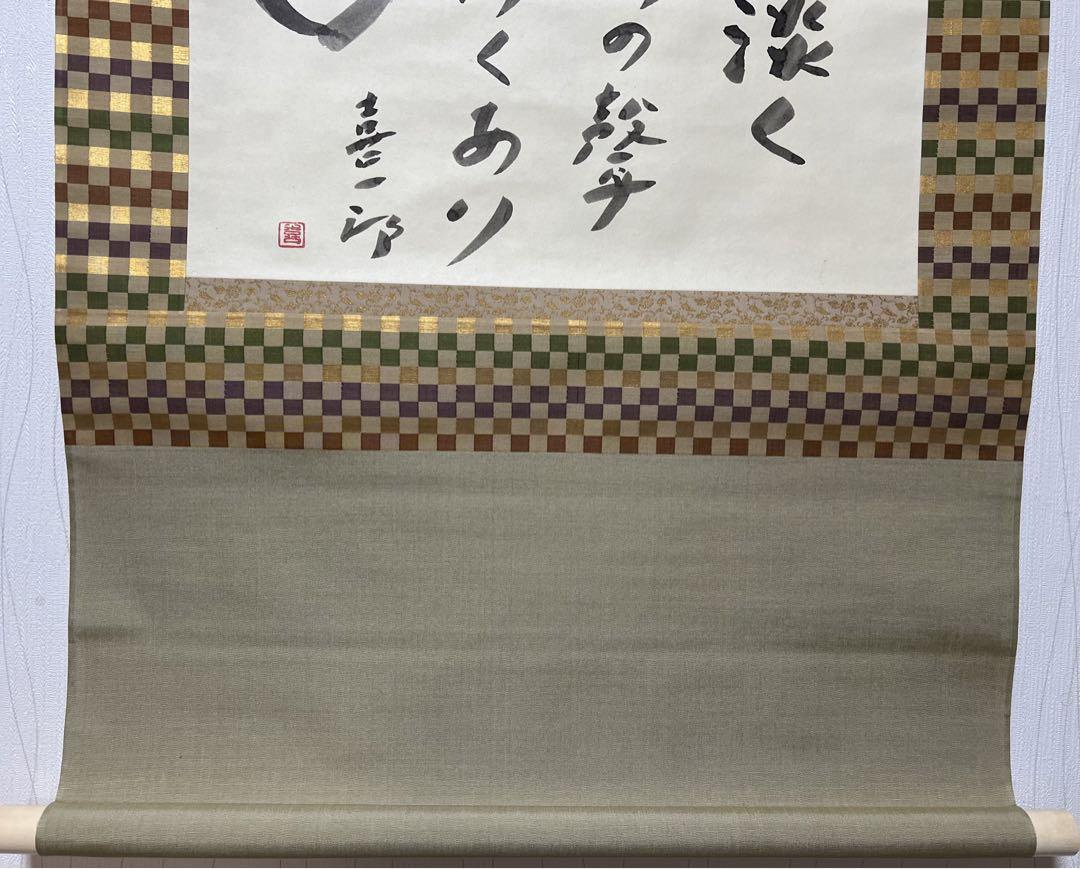 淡く
の聲
くあり
喜一郎